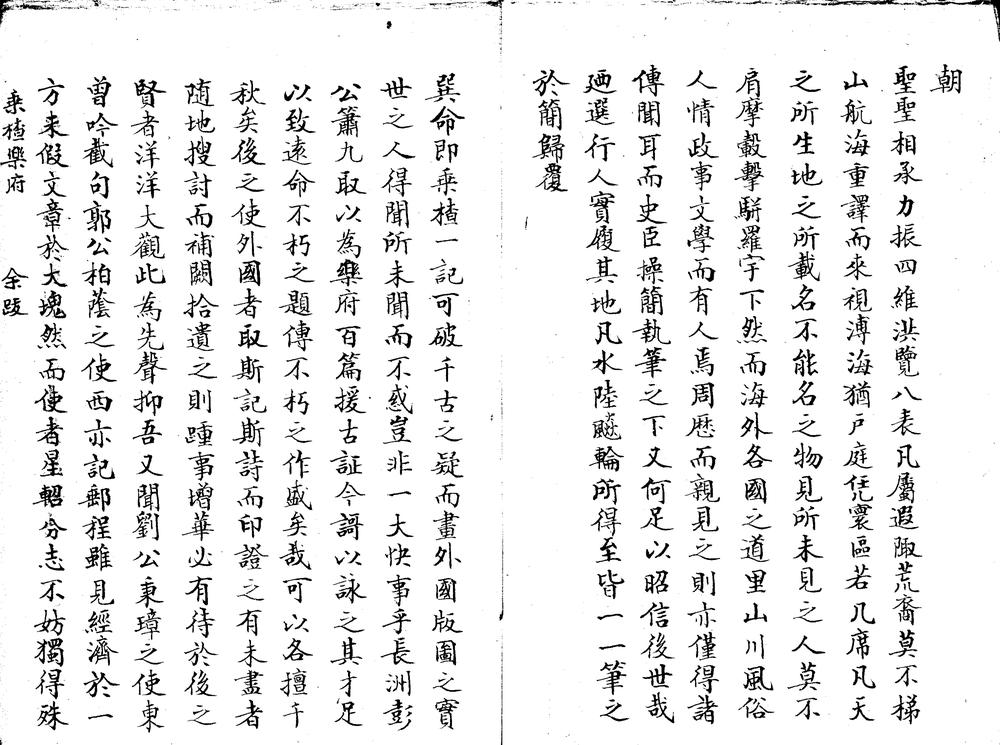 朝
聖聖相承力振四維洪覽八表凡屬遐陬荒裔莫不梯
山航海重譯而來視溥海猶戶庭凭寰區若几席凡天
之所生地之所載名不能名之物見所未見之人莫不
肩摩轂擊駢羅宇下然而海外各國之道里山川風俗
人情政事文學而有人焉周歷而親見之則亦僅得諸
傳聞耳而史臣操簡執筆之下又何足以昭信後世哉
廼選行人實履其地凡水陸飈輪所得至皆一一筆之
於簡歸覆
巽命即乘楂一記可破千古之疑而畫外國版圖之實
世之人得聞所未聞而不惑豈非一大快事乎長洲彭
公簫九取以為樂府百篇援古証今謌以詠之其才足
以致遠命不朽之題傳不朽之作盛矣哉可以各擅千
秋矣後之使外國者取斯記斯詩而印證之有未盡者
隨地搜討而補闕拾遺之則踵事增華必有待於後之
賢者洋洋大觀此為先聲抑吾又聞劉公秉璋之使東
曾吟截句郭公柏蔭之使西亦記郵程雖見經濟於一
方未假文章於大塊然而使者星軺分志不妨獨得殊
乘楂樂府 余跋